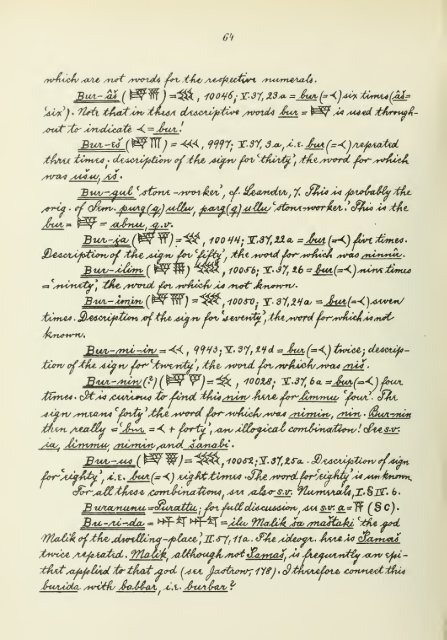 64
which are not words for the respective numerals.
Bur-âš (𒁓𒐋) = , 10046; V.37, 23.a = bur (=𒌋) six times (âš=
'six'). Note that in these descriptive words bur = 𒁓 is used through-
out to indicate 𒌋 = bur!
Bur-eš (𒁓𒐈) = 𒌋𒌋𒌋, 9997; V.37, 3.a, i.e. bur (=𒌋) repeated
three times; description of the sign for 'thirty', the word for which
was ušu, eš.
Bur-gul 'stone-worker', cf. Leander, 7. This is probably the
orig. of Sem. purg(q)ullu, parg(q)ullu 'stone-worker.' This is the
bur = 𒁓 = abnu, q.v.
Bur-ia (𒁓𒐊) = , 10044; V.37, 22a = bur (=𒌋) five times.
Description of the sign for 'fifty', the word for which was ninnû.
Bur-ilim (𒁓) = , 10056; V.37, 26 = bur (=𒌋) nine times
= 'ninety', the word for which is not known.
Bur-imin (𒁓𒐌) = , 10050; V.37, 24a. = bur (=𒌋) seven
times. Description of the sign for 'seventy', the word for which is not
known.
Bur-mi-in = 𒌋𒌋, 9943; V.37, 24d = bur (=𒌋) twice; descrip-
tion of the sign for 'twenty', the word for which was niš.
Bur-nin (?) (𒁓) = , 10028; V.37, 6a = bur (=𒌋) four
times. It is curious to find this nin here for limmu 'four'. The
sign means 'forty' the word for which was nimin, nin. Bur-nin
then really = 'bur = 𒌋 + forty', an illogical combination! See s.v.
ia, limmu, nimin and šanabi.
Bur-us (𒁓) = , 10052; V.37, 25a. Description of sign
for 'eighty', i.e. bur (=𒌋) eight times. The word for 'eighty' is unknown.
For all these combinations, see also s.v. Numerals, I. § IV. 6.
Buranunu = Purattu; for full discussion, su s.v. a = 𒀀 (§ C).
Bu-ri-da = = ilu Malik ša maštaki 'the god
Malik of the dwelling-place', II. 57, 11a. The ideogr. here is Šamaš
twice repeated. Malik, although not Šamaš, is frequently an epi-
thet applied to that god (see Jastrow, 178). I therefore connect this
burida with babbar, i.e. burbar?